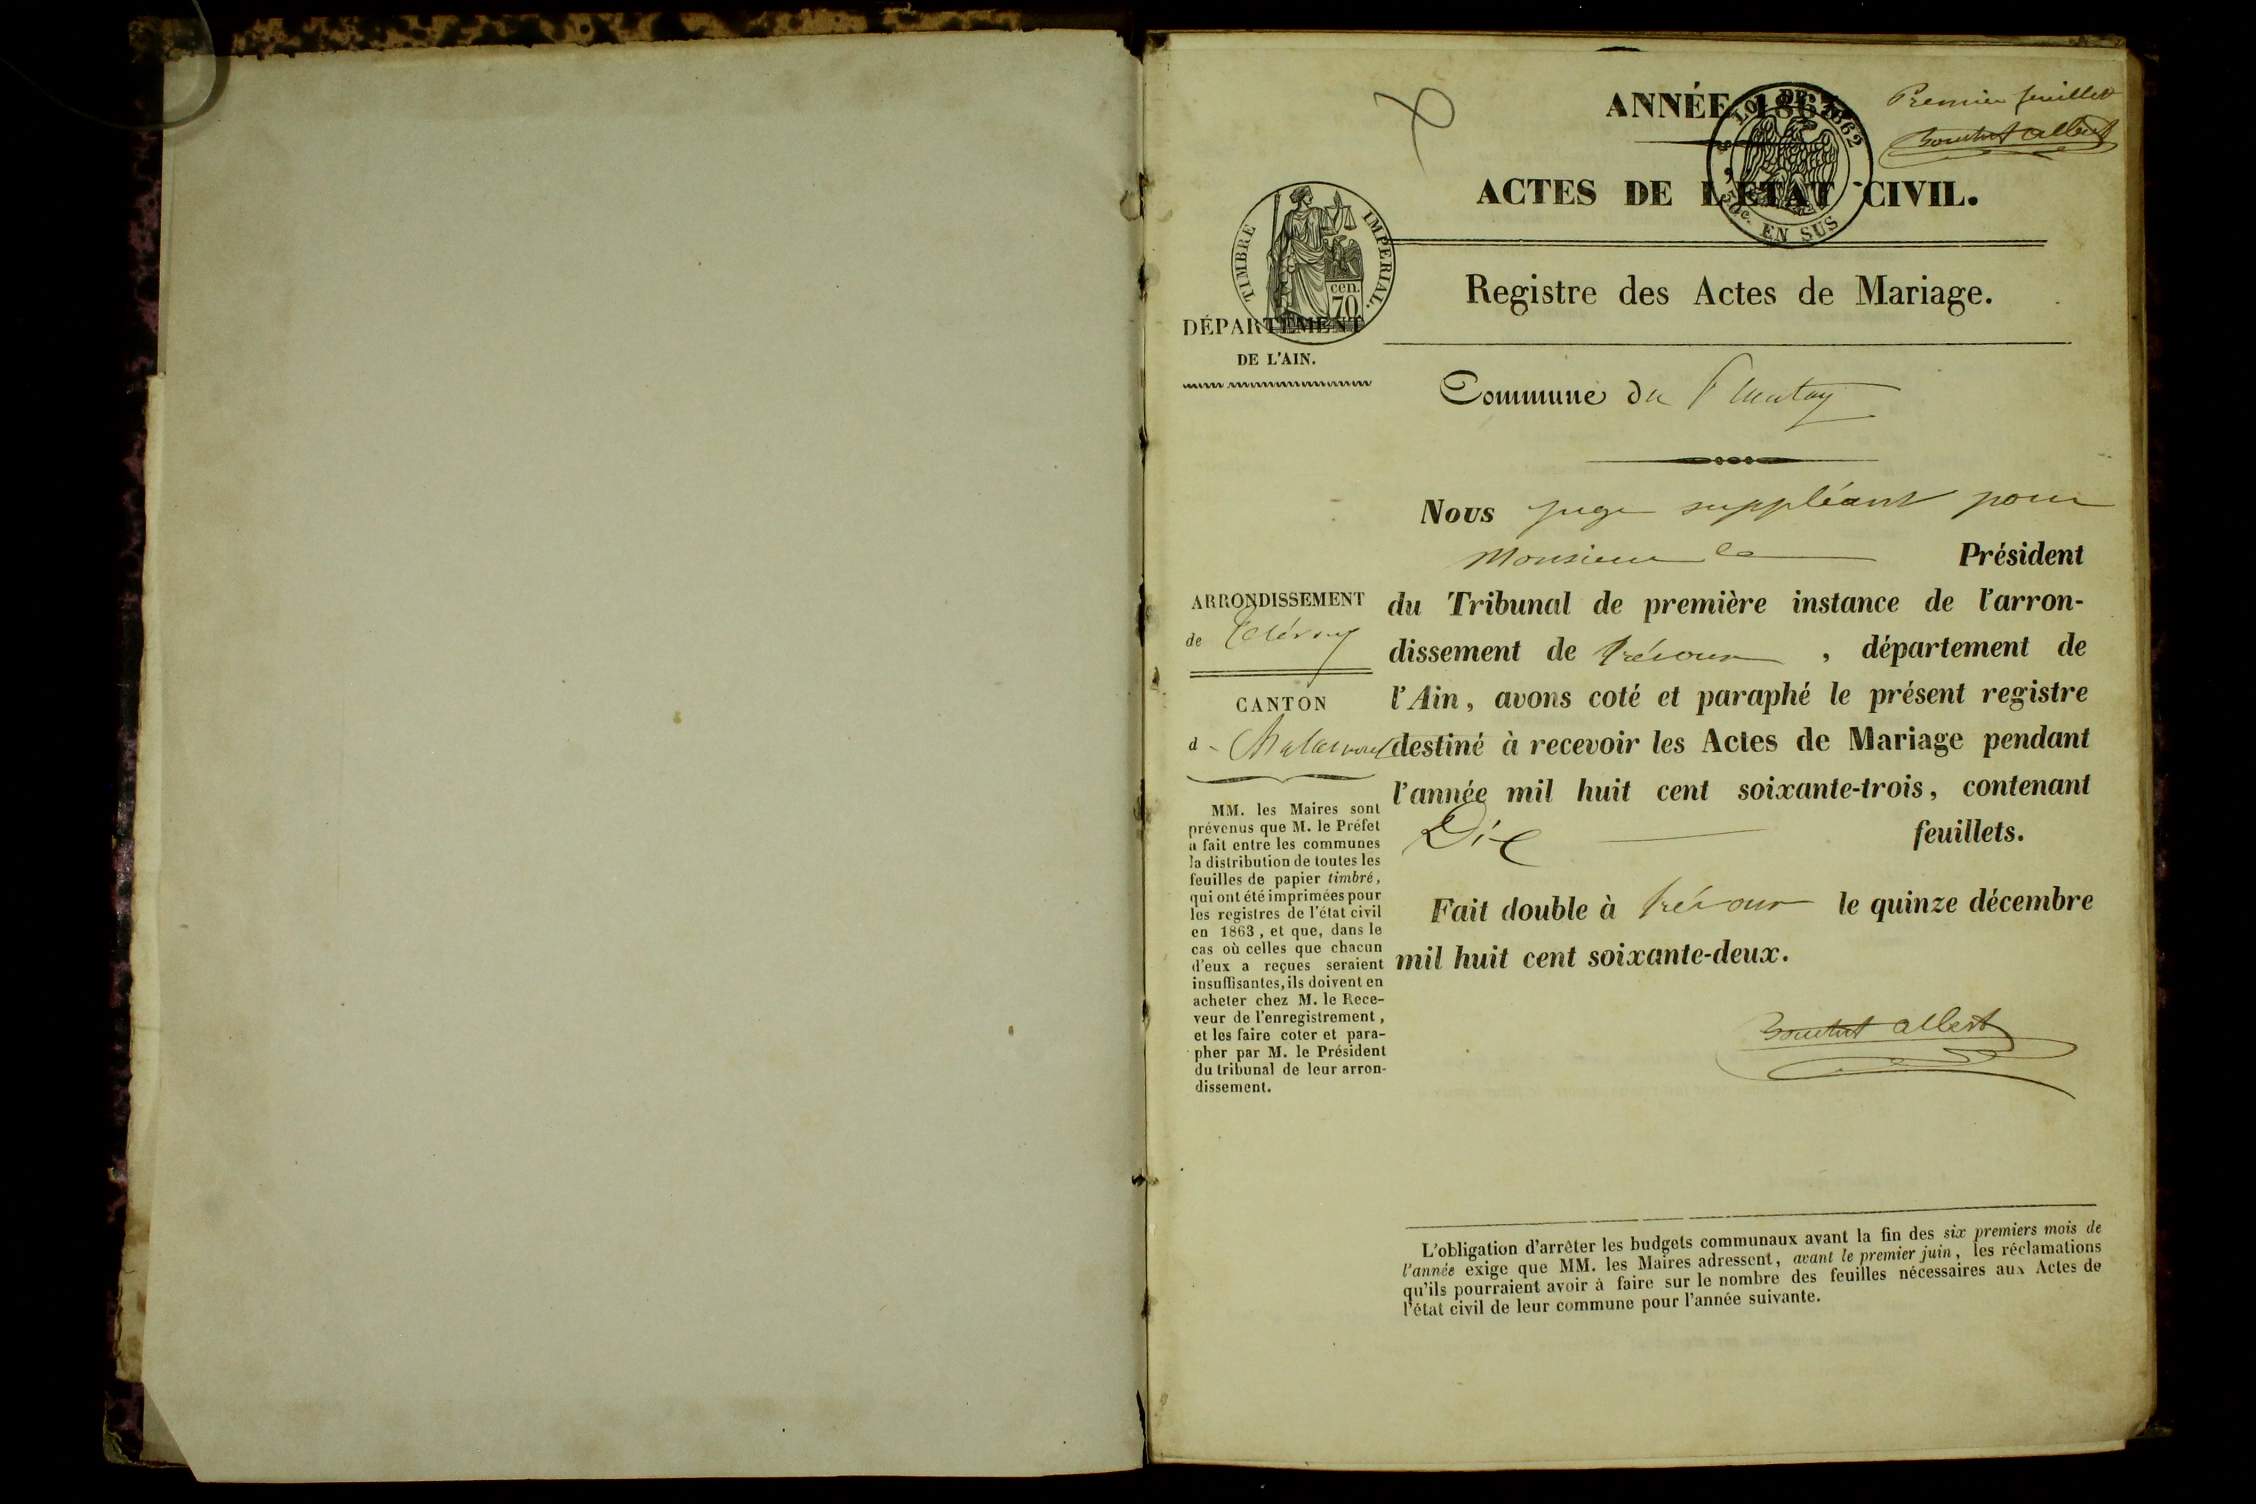 Premier feuillet
ANNÉE 1863
LOI DE 1862
EN SUS
ACTES DE L'ÉTAT CIVIL.
TIMBRE IMPÉRIAL.
cen.
70
Registre des Actes de Mariage.
DÉPARTEMENT
DE L'AIN.
Commune du Plantay
Nous juge suppléant pour
Monsieur le Président
du Tribunal de première instance de l'arron-
dissement de trévoux , département de
l'Ain, avons coté et paraphé le présent registre
destiné à recevoir les Actes de Mariage pendant
l'année mil huit cent soixante-trois, contenant
Dix feuillets.
Fait double à trévoux le quinze décembre
mil huit cent soixante-deux.
albert
ARRONDISSEMENT
de Trévoux
CANTON
d Chalamont
MM. les Maires sont
prévenus que M. le Préfet
a fait entre les communes
la distribution de toutes les
feuilles de papier timbré,
qui ont été imprimées pour
les registres de l'état civil
en 1863, et que, dans le
cas où celles que chacun
d'eux a reçues seraient
insuffisantes, ils doivent en
acheter chez M. le Rece-
veur de l'enregistrement,
et les faire coter et para-
pher par M. le Président
du tribunal de leur arron-
dissement.
L'obligation d'arrêter les budgets communaux avant la fin des six premiers mois de
l'année exige que MM. les Maires adressent, avant le premier juin, les réclamations
qu'ils pourraient avoir à faire sur le nombre des feuilles nécessaires aux Actes de
l'état civil de leur commune pour l'année suivante.